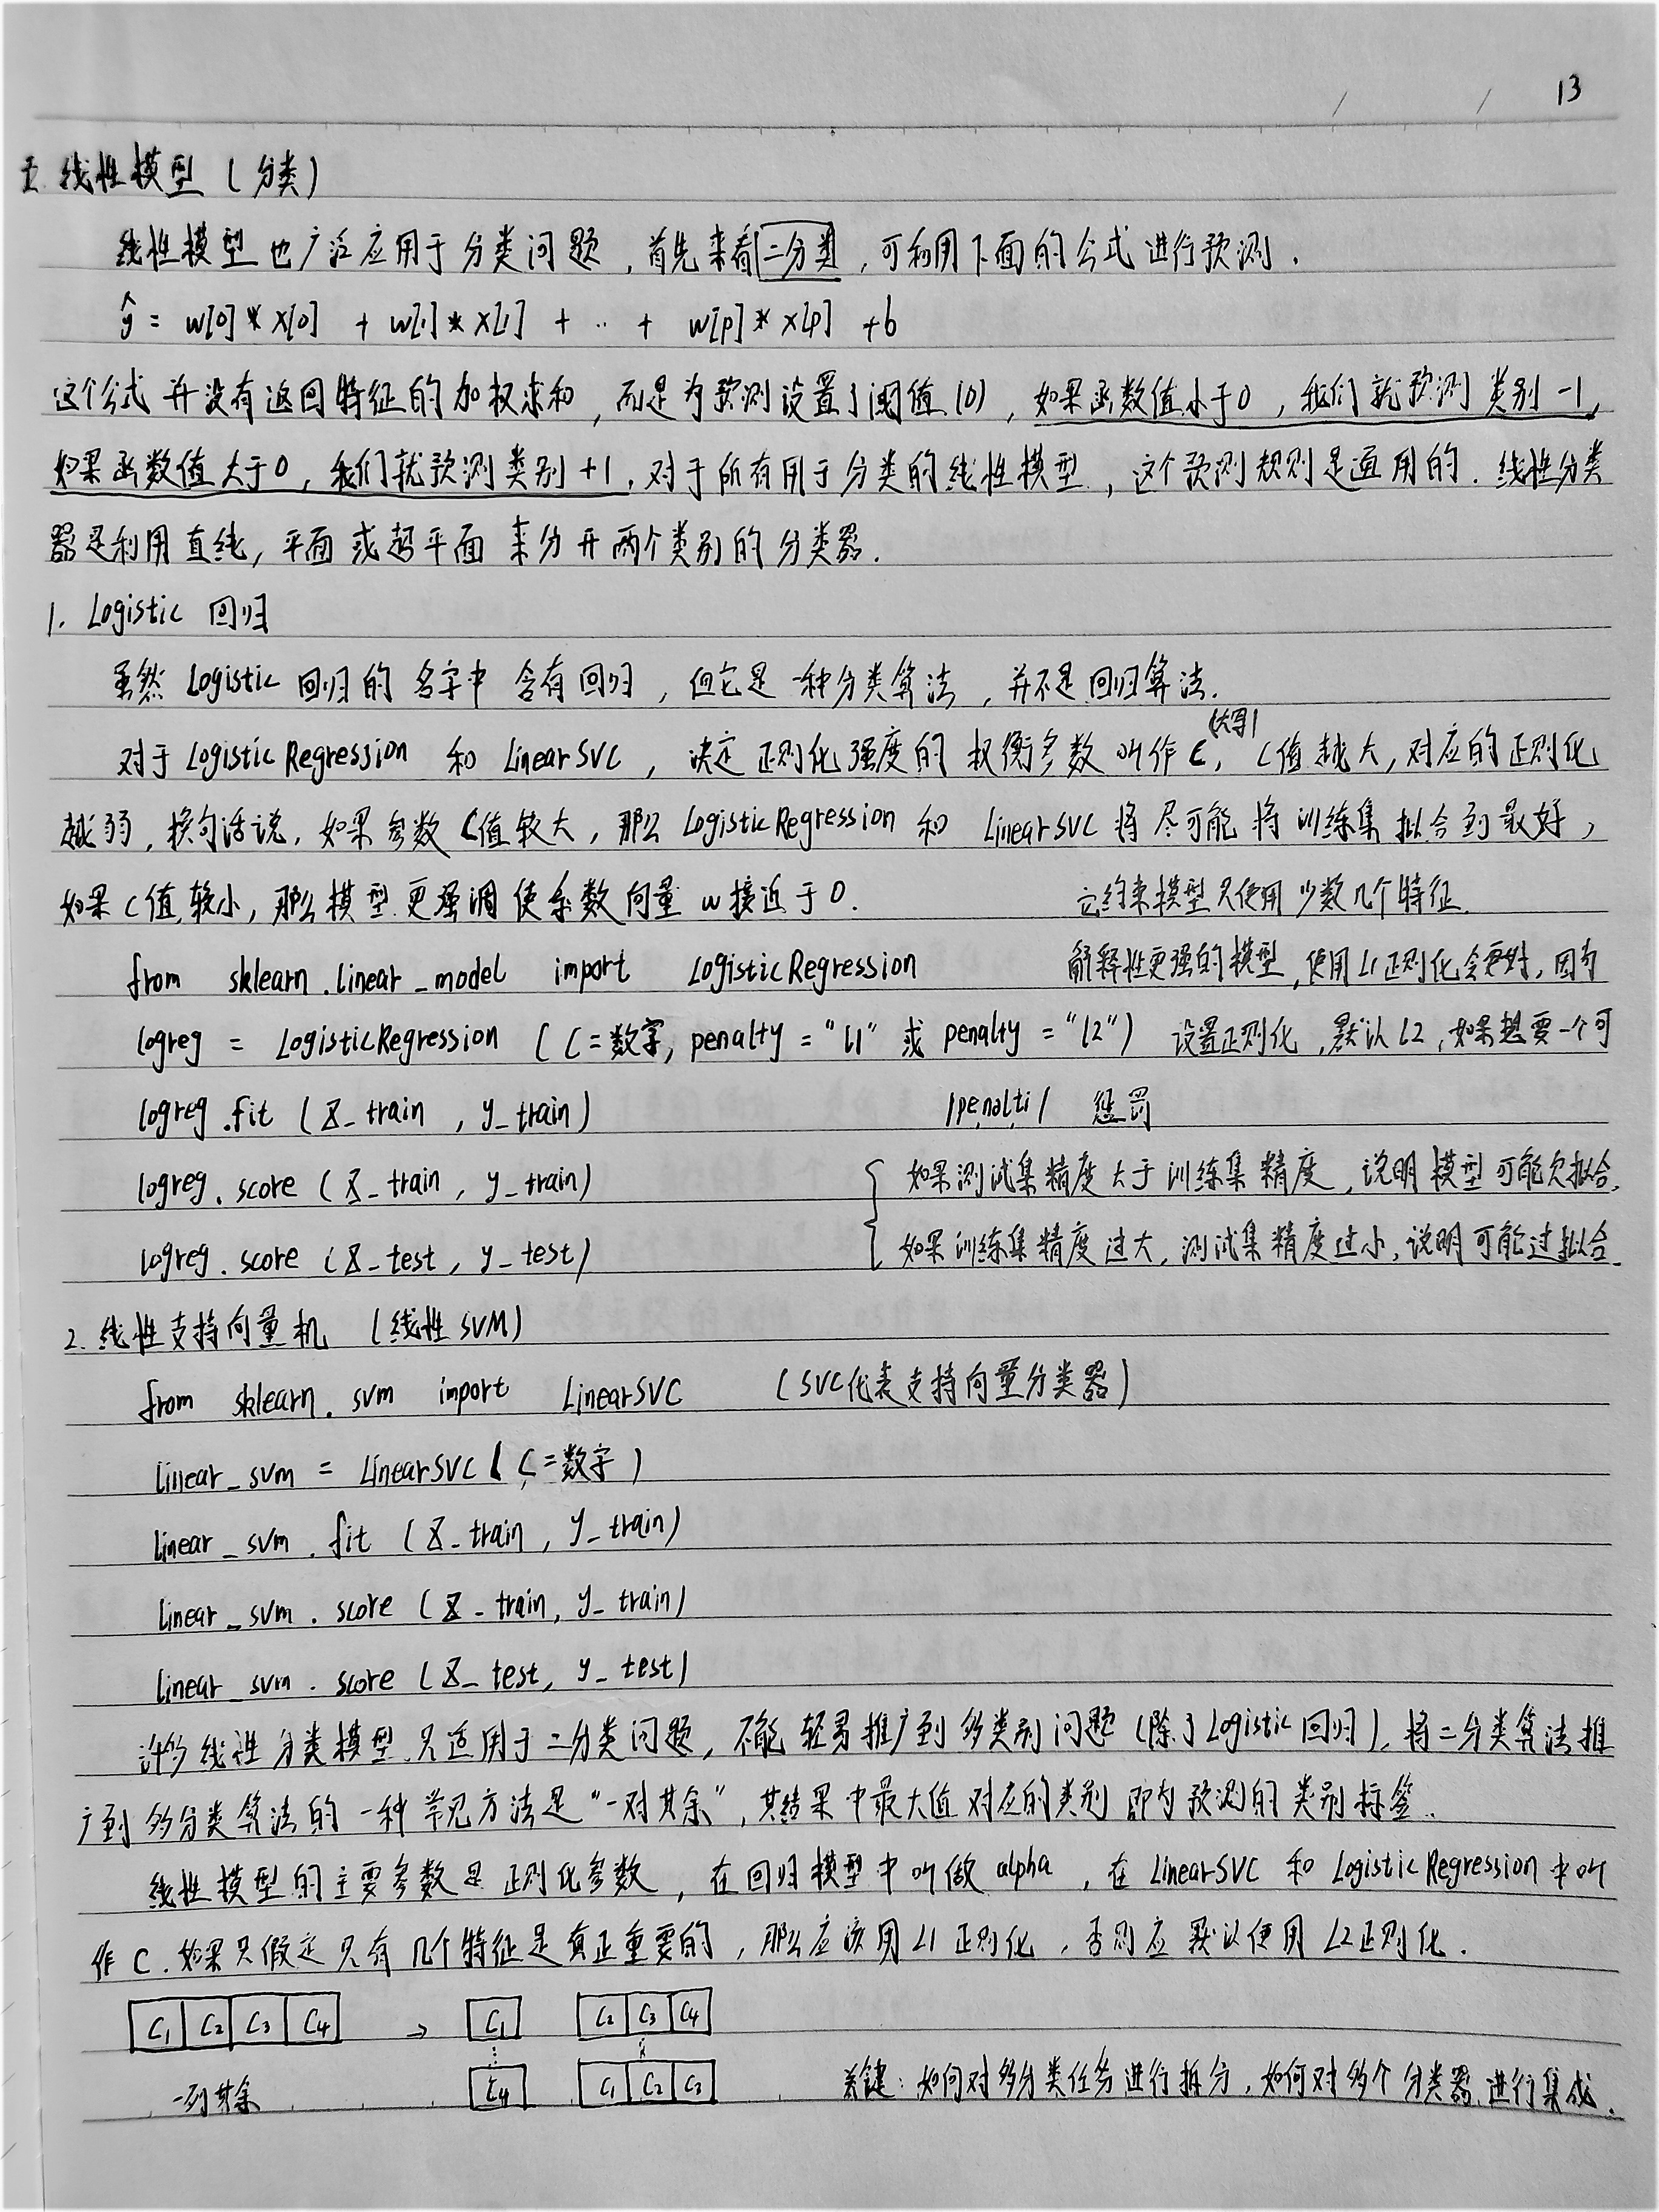 13
五. 线性模型 (分类)
线性模型也广泛应用于分类问题, 首先来看二分类, 可利用下面的公式进行预测.
ŷ = w[0] * x[0] + w[1] * x[1] + ... + w[p] * x[p] + b
这个公式并没有返回特征的加权求和, 而是为预测设置了阈值 (0), 如果函数值小于0, 我们就预测类别 -1,
如果函数值大于0, 我们就预测类别 +1, 对于所有用于分类的线性模型, 这个预测规则是通用的. 线性分类
器是利用直线, 平面或超平面来分开两个类别的分类器.
1. Logistic 回归
虽然 Logistic 回归的名字中含有回归, 但它是一种分类算法, 并不是回归算法.
(大写)
对于 LogisticRegression 和 LinearSVC, 决定正则化强度的权衡参数叫作 C, C值越大, 对应的正则化
越弱, 换句话说, 如果参数C值较大, 那么 LogisticRegression 和 LinearSVC 将尽可能将训练集拟合到最好,
如果C值较小, 那么模型更强调使系数向量 w 接近于 0. 它约束模型只使用少数几个特征.
from sklearn.linear_model import LogisticRegression 解释性更强的模型, 使用L1正则化会更好, 因为
logreg = LogisticRegression (C=数字, penalty = "l1" 或 penalty = "l2") 设置正则化, 默认L2, 如果想要一个可
logreg.fit (X_train , y_train) /penəlti/ 惩罚
logreg.score (X_train , y_train) { 如果测试集精度大于训练集精度, 说明模型可能欠拟合.
logreg.score (X_test , y_test) 如果训练集精度过大, 测试集精度过小, 说明可能过拟合.
2. 线性支持向量机 (线性 SVM)
from sklearn.svm import LinearSVC (SVC代表支持向量分类器)
linear_svm = LinearSVC (C=数字)
linear_svm.fit (X_train , y_train)
linear_svm.score (X_train, y_train)
linear_svm.score (X_test, y_test)
许多线性分类模型只适用于二分类问题, 不能轻易推广到多类别问题 (除了Logistic回归), 将二分类算法推
广到多分类算法的一种常见方法是 "一对其余", 其结果中最大值对应的类别即为预测的类别标签.
线性模型的主要参数是正则化参数, 在回归模型中叫做 alpha, 在 LinearSVC 和 LogisticRegression 中叫
作 C. 如果只假定只有几个特征是真正重要的, 那么应该用L1正则化, 否则应默认使用 L2正则化.
C₁ C₂ C₃ C₄ → C₁ C₂ C₃ C₄
一对其余 C₄ C₁ C₂ C₃ 关键: 如何对多分类任务进行拆分, 如何对多个分类器进行集成.